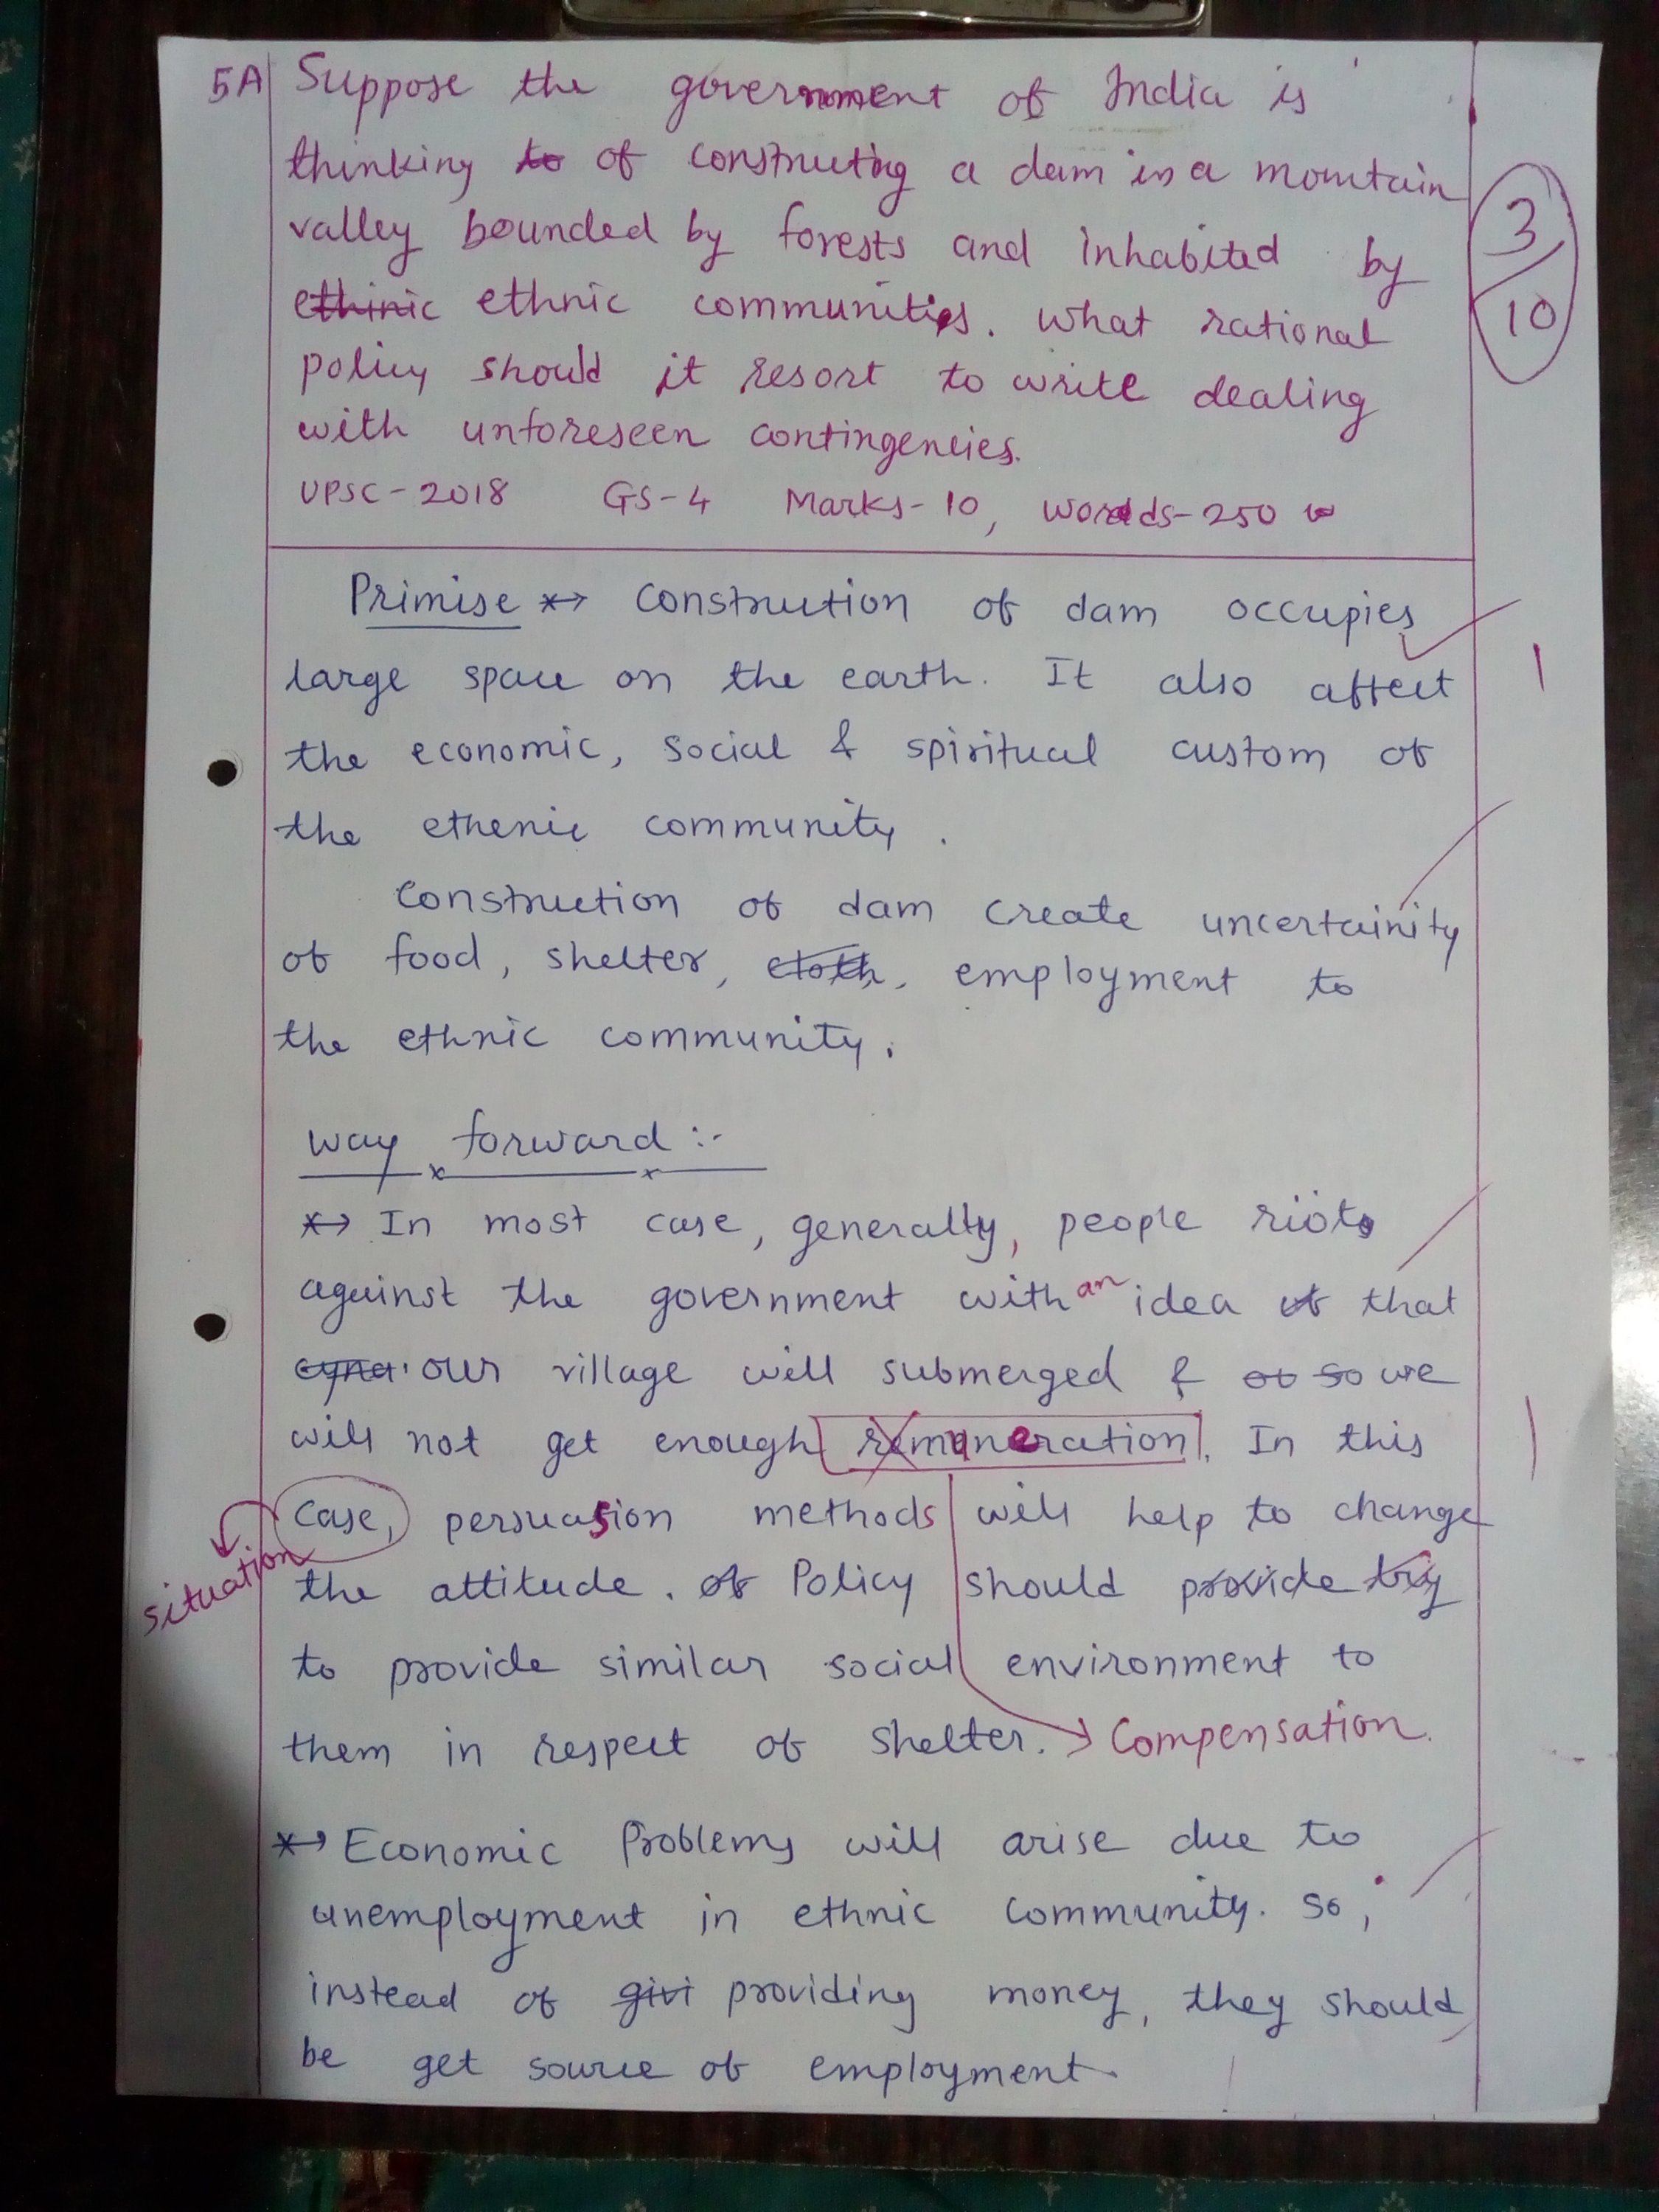 5A Suppose the government of India is
thinking to of constructing a dam in a mountain
valley bounded by forests and inhabited by
ethinic ethnic communities. What rational
policy should it resort to write dealing
with unforeseen contingencies.
UPSC-2018 GS-4 Marks-10, words-250
3/10
Primise *→ Construction of dam occupies
large space on the earth. It also affect
1
the economic, social & spiritual custom of
the ethenic community.
Construction of dam create uncertainity
of food, shelter, cloth, employment to
the ethnic community.
Way forward :-
*→ In most case, generally, people riots
against the government with an idea of that
our village will submerged & ot so we
will not get enough remuneration. In this
1
case, persuasion methods will help to change
situation
the attitude. of Policy should provide try
to provide similar social environment to
them in respect of shelter. → Compensation.
*→ Economic Problems will arise due to
unemployment in ethnic community. So,
instead of givi providing money, they should
be get source of employment.